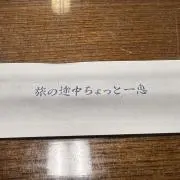 旅の途中ちょっと一息